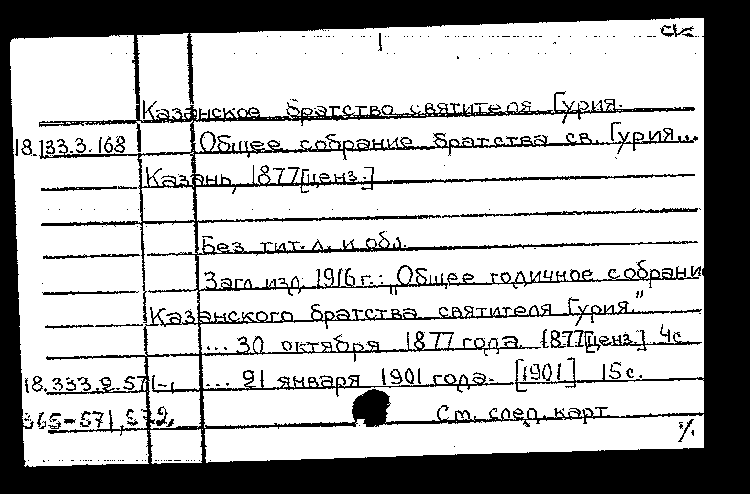 Казанское братство святителя Гурия.
18.133.3.168 Общее собрание братства св. Гурия...
Казань, 1877[ценз.]
Без тит. л. и обл.
Загл. изд. 1916 г.: „Общее годичное собрани
Казанского братства святителя Гурия."
... 30 октября 1877 года. 1877[ценз.] 4с
... 21 января 1901 года. [1901] 15с.
См. след. карт.